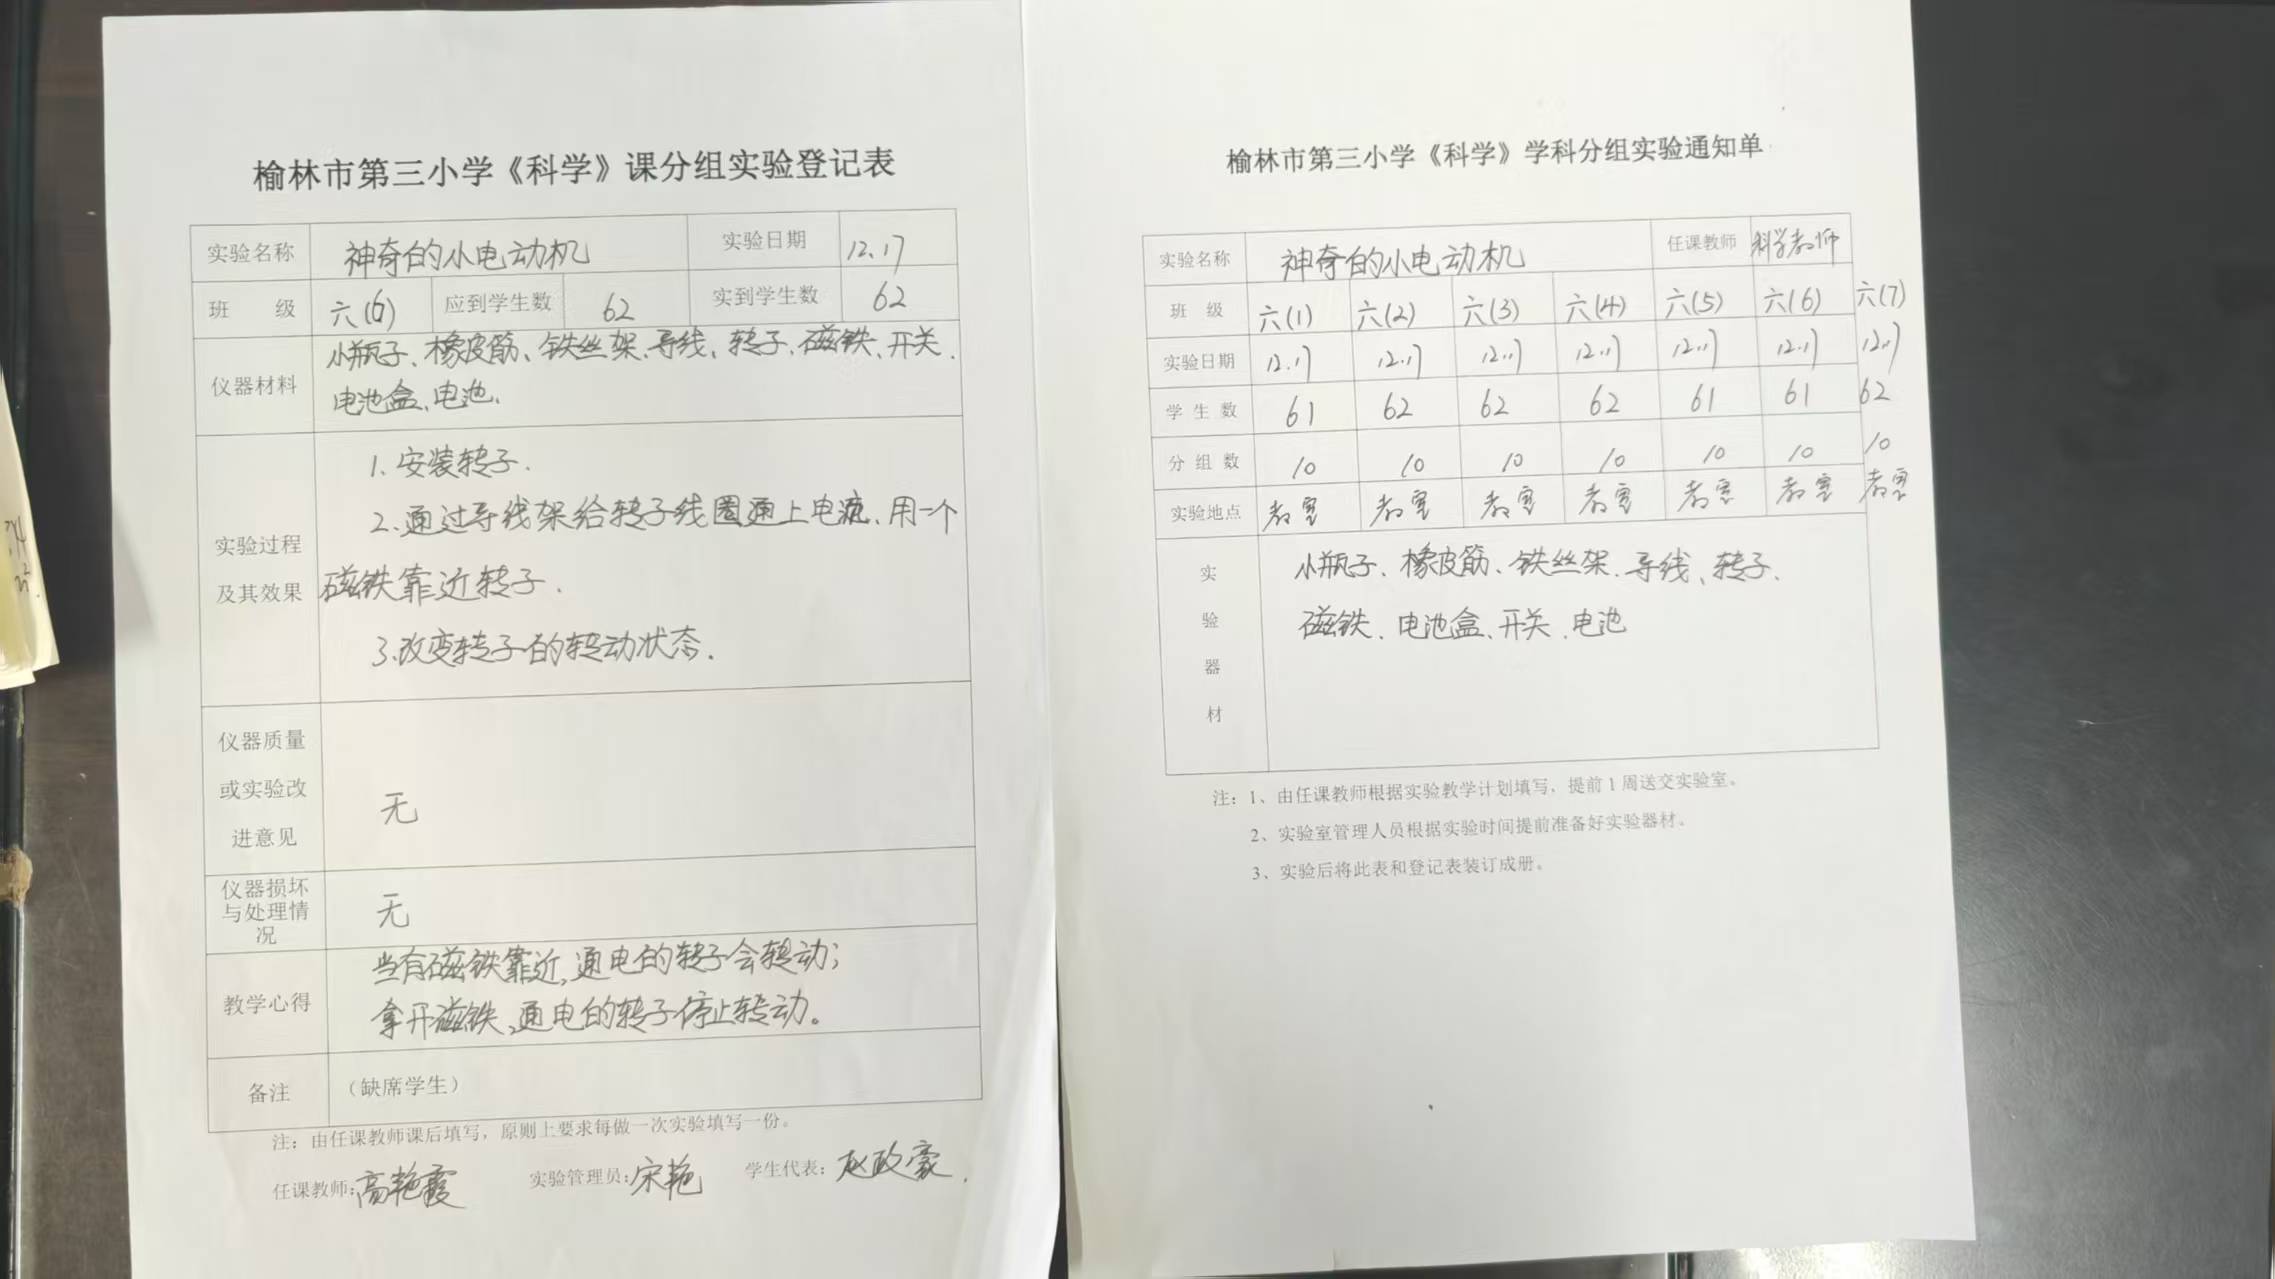 榆林市第三小学《科学》课分组实验登记表
实验名称 神奇的小电动机 实验日期 12.17
班 级 六(6) 应到学生数 62 实到学生数 62
仪器材料 小瓶子、橡皮筋、铁丝架、导线、转子、磁铁、开关、
电池盒、电池、
实验过程
及其效果
1.安装转子.
2.通过导线架给转子线圈通上电流、用一个
磁铁靠近转子.
3.改变转子的转动状态.
仪器质量
或实验改
进意见
无
仪器损坏
与处理情
况
无
教学心得
当有磁铁靠近,通电的转子会转动;
拿开磁铁,通电的转子停止转动。
备注 （缺席学生）
注：由任课教师课后填写，原则上要求每做一次实验填写一份。
任课教师:高艳霞 实验管理员:宋艳 学生代表:赵政豪.
榆林市第三小学《科学》学科分组实验通知单
实验名称 神奇的小电动机 任课教师 科学教师
班 级 六(1) 六(2) 六(3) 六(4) 六(5) 六(6) 六(7)
实验日期 12.17 12.17 12.17 12.17 12.17 12.17 12.17
学 生 数 61 62 62 62 61 61 62
分 组 数 10 10 10 10 10 10 10
实验地点 教室 教室 教室 教室 教室 教室 教室
实
验
器
材
小瓶子、橡皮筋、铁丝架、导线、转子、
磁铁、电池盒、开关、电池
注：1、由任课教师根据实验教学计划填写，提前1周送交实验室。
2、实验室管理人员根据实验时间提前准备好实验器材。
3、实验后将此表和登记表装订成册。